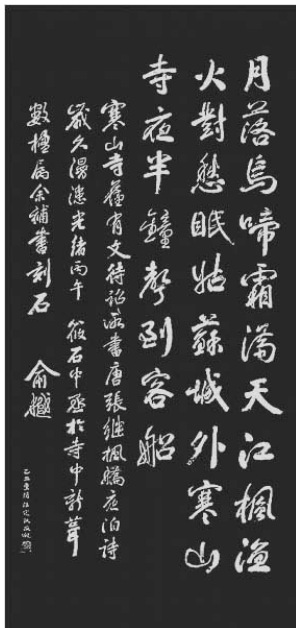 月落烏啼霜滿天江楓漁
火對愁眠姑蘇城外寒山
寺夜半鐘聲到客船
寒山寺舊有文待詔所書唐張繼楓橋夜泊詩
歲久漫漶光緒丙午 筱石中丞於寺中新葺
數楹屬余補書刻石
俞樾